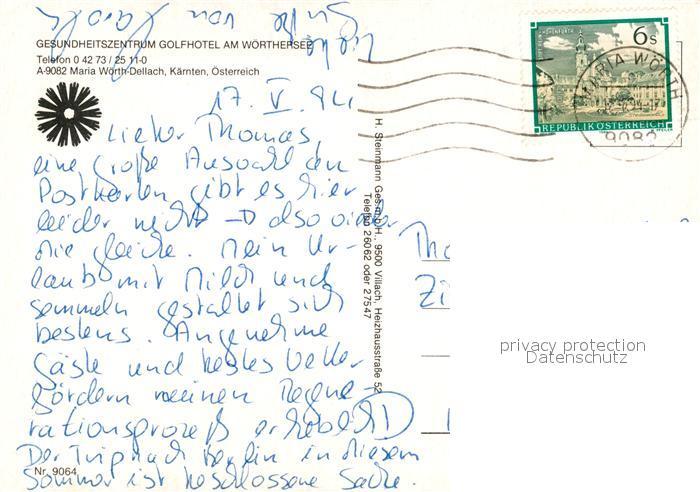 Liebe Grüße von Carola
GESUNDHEITSZENTRUM GOLFHOTEL AM WÖRTHERSEE
Telefon 0 42 73 / 25 11-0
A-9082 Maria Wörth-Dellach, Kärnten, Österreich
17. V. 94
Lieber Thomas,
eine große Auswahl an
Postkarten gibt es hier
leider nicht → also wieder
die gleiche. Mein Ur-
laub mit Milch und
semmeln gestaltet sich
bestens. Angenehme
Gäste und bestes Wetter
fördern meinen Regene-
rationsprozeß erheblich
Der Trip nach Berlin in diesem
Sommer ist beschlossene Sache.
Nr. 9064
H. Steinmann Ges.m.b.H. 9500 Villach, Heizhausstraße 52
Telefon 26062 oder 27547
6 S
REPUBLIK ÖSTERREICH
MARIA WÖRTH
9082
Tho
Zi
privacy protection
Datenschutz